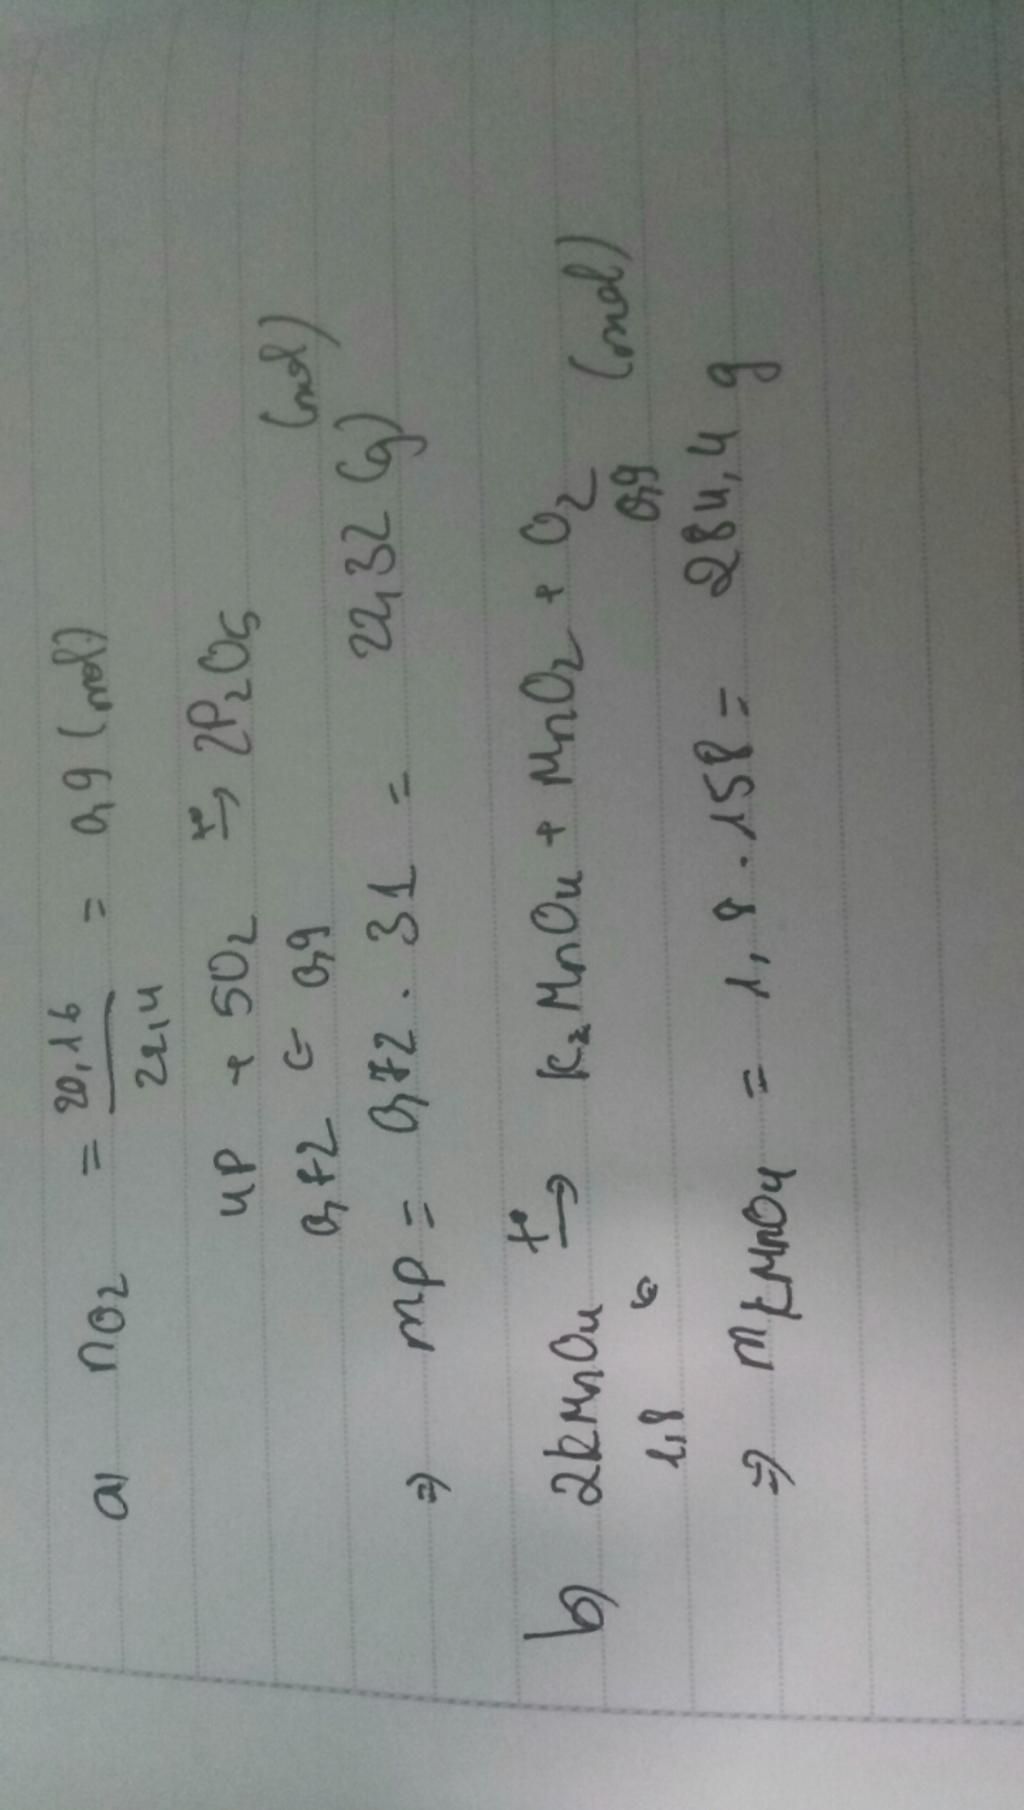 a) nO2 = 20,16/22,4 = 0,9 (mol)
4P + 5O2 t°→ 2P2O5
0,72 ← 0,9 (mol)
⇒ mP = 0,72 . 31 = 22,32 (g)
b) 2KMnO4 t°→ K2MnO4 + MnO2 + O2
1,8 ← 0,9 (mol)
⇒ mKMnO4 = 1,8 . 158 = 284,4 g